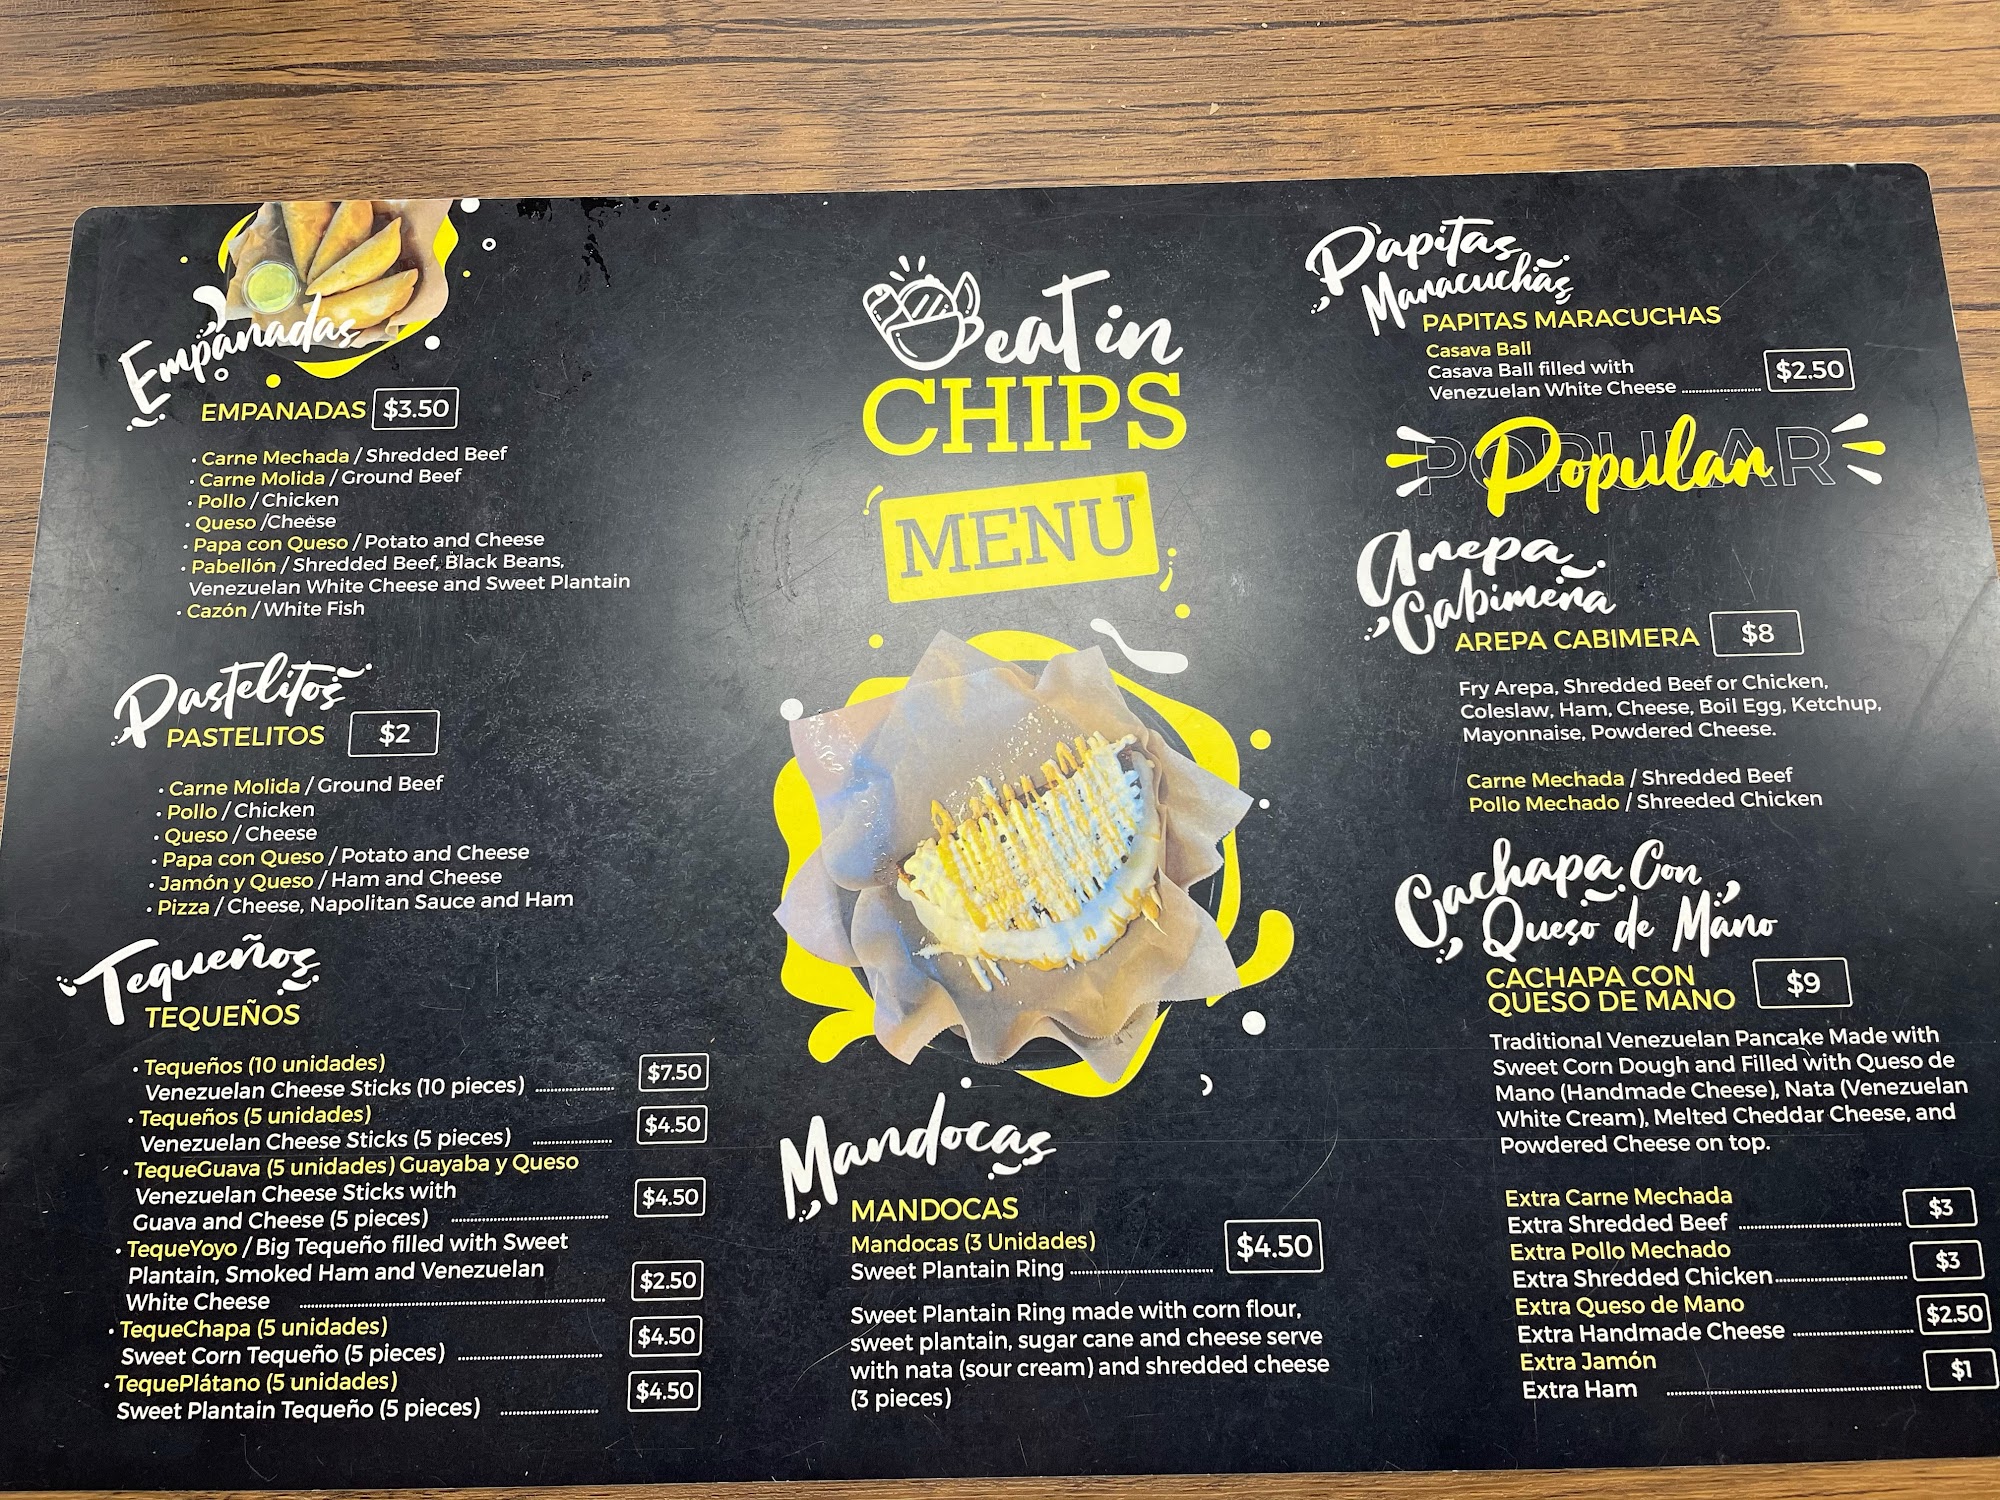 Empanadas
EMPANADAS $3.50
• Carne Mechada / Shredded Beef
• Carne Molida / Ground Beef
• Pollo / Chicken
• Queso /Cheese
• Papa con Queso / Potato and Cheese
• Pabellón / Shredded Beef, Black Beans,
Venezuelan White Cheese and Sweet Plantain
• Cazón / White Fish
Pastelitos
PASTELITOS $2
• Carne Molida / Ground Beef
• Pollo / Chicken
• Queso / Cheese
• Papa con Queso / Potato and Cheese
• Jamón y Queso / Ham and Cheese
• Pizza / Cheese, Napolitan Sauce and Ham
Tequeños
TEQUEÑOS
• Tequeños (10 unidades)
Venezuelan Cheese Sticks (10 pieces) $7.50
• Tequeños (5 unidades)
Venezuelan Cheese Sticks (5 pieces) $4.50
• TequeGuava (5 unidades) Guayaba y Queso
Venezuelan Cheese Sticks with
Guava and Cheese (5 pieces) $4.50
• TequeYoyo / Big Tequeño filled with Sweet
Plantain, Smoked Ham and Venezuelan
White Cheese $2.50
• TequeChapa (5 unidades)
Sweet Corn Tequeño (5 pieces) $4.50
• TequePlátano (5 unidades)
Sweet Plantain Tequeño (5 pieces) $4.50
eat in
CHIPS
MENU
Mandocas
MANDOCAS
Mandocas (3 Unidades)
Sweet Plantain Ring $4.50
Sweet Plantain Ring made with corn flour,
sweet plantain, sugar cane and cheese serve
with nata (sour cream) and shredded cheese
(3 pieces)
Papitas
Maracuchas
PAPITAS MARACUCHAS
Casava Ball
Casava Ball filled with
Venezuelan White Cheese $2.50
POPULAR
Popular
Arepa
Cabimera
AREPA CABIMERA $8
Fry Arepa, Shredded Beef or Chicken,
Coleslaw, Ham, Cheese, Boil Egg, Ketchup,
Mayonnaise, Powdered Cheese.
Carne Mechada / Shredded Beef
Pollo Mechado / Shreeded Chicken
Cachapa Con
Queso de Mano
CACHAPA CON
QUESO DE MANO $9
Traditional Venezuelan Pancake Made with
Sweet Corn Dough and Filled with Queso de
Mano (Handmade Cheese), Nata (Venezuelan
White Cream), Melted Cheddar Cheese, and
Powdered Cheese on top.
Extra Carne Mechada
Extra Shredded Beef $3
Extra Pollo Mechado
Extra Shredded Chicken $3
Extra Queso de Mano
Extra Handmade Cheese $2.50
Extra Jamón
Extra Ham $1